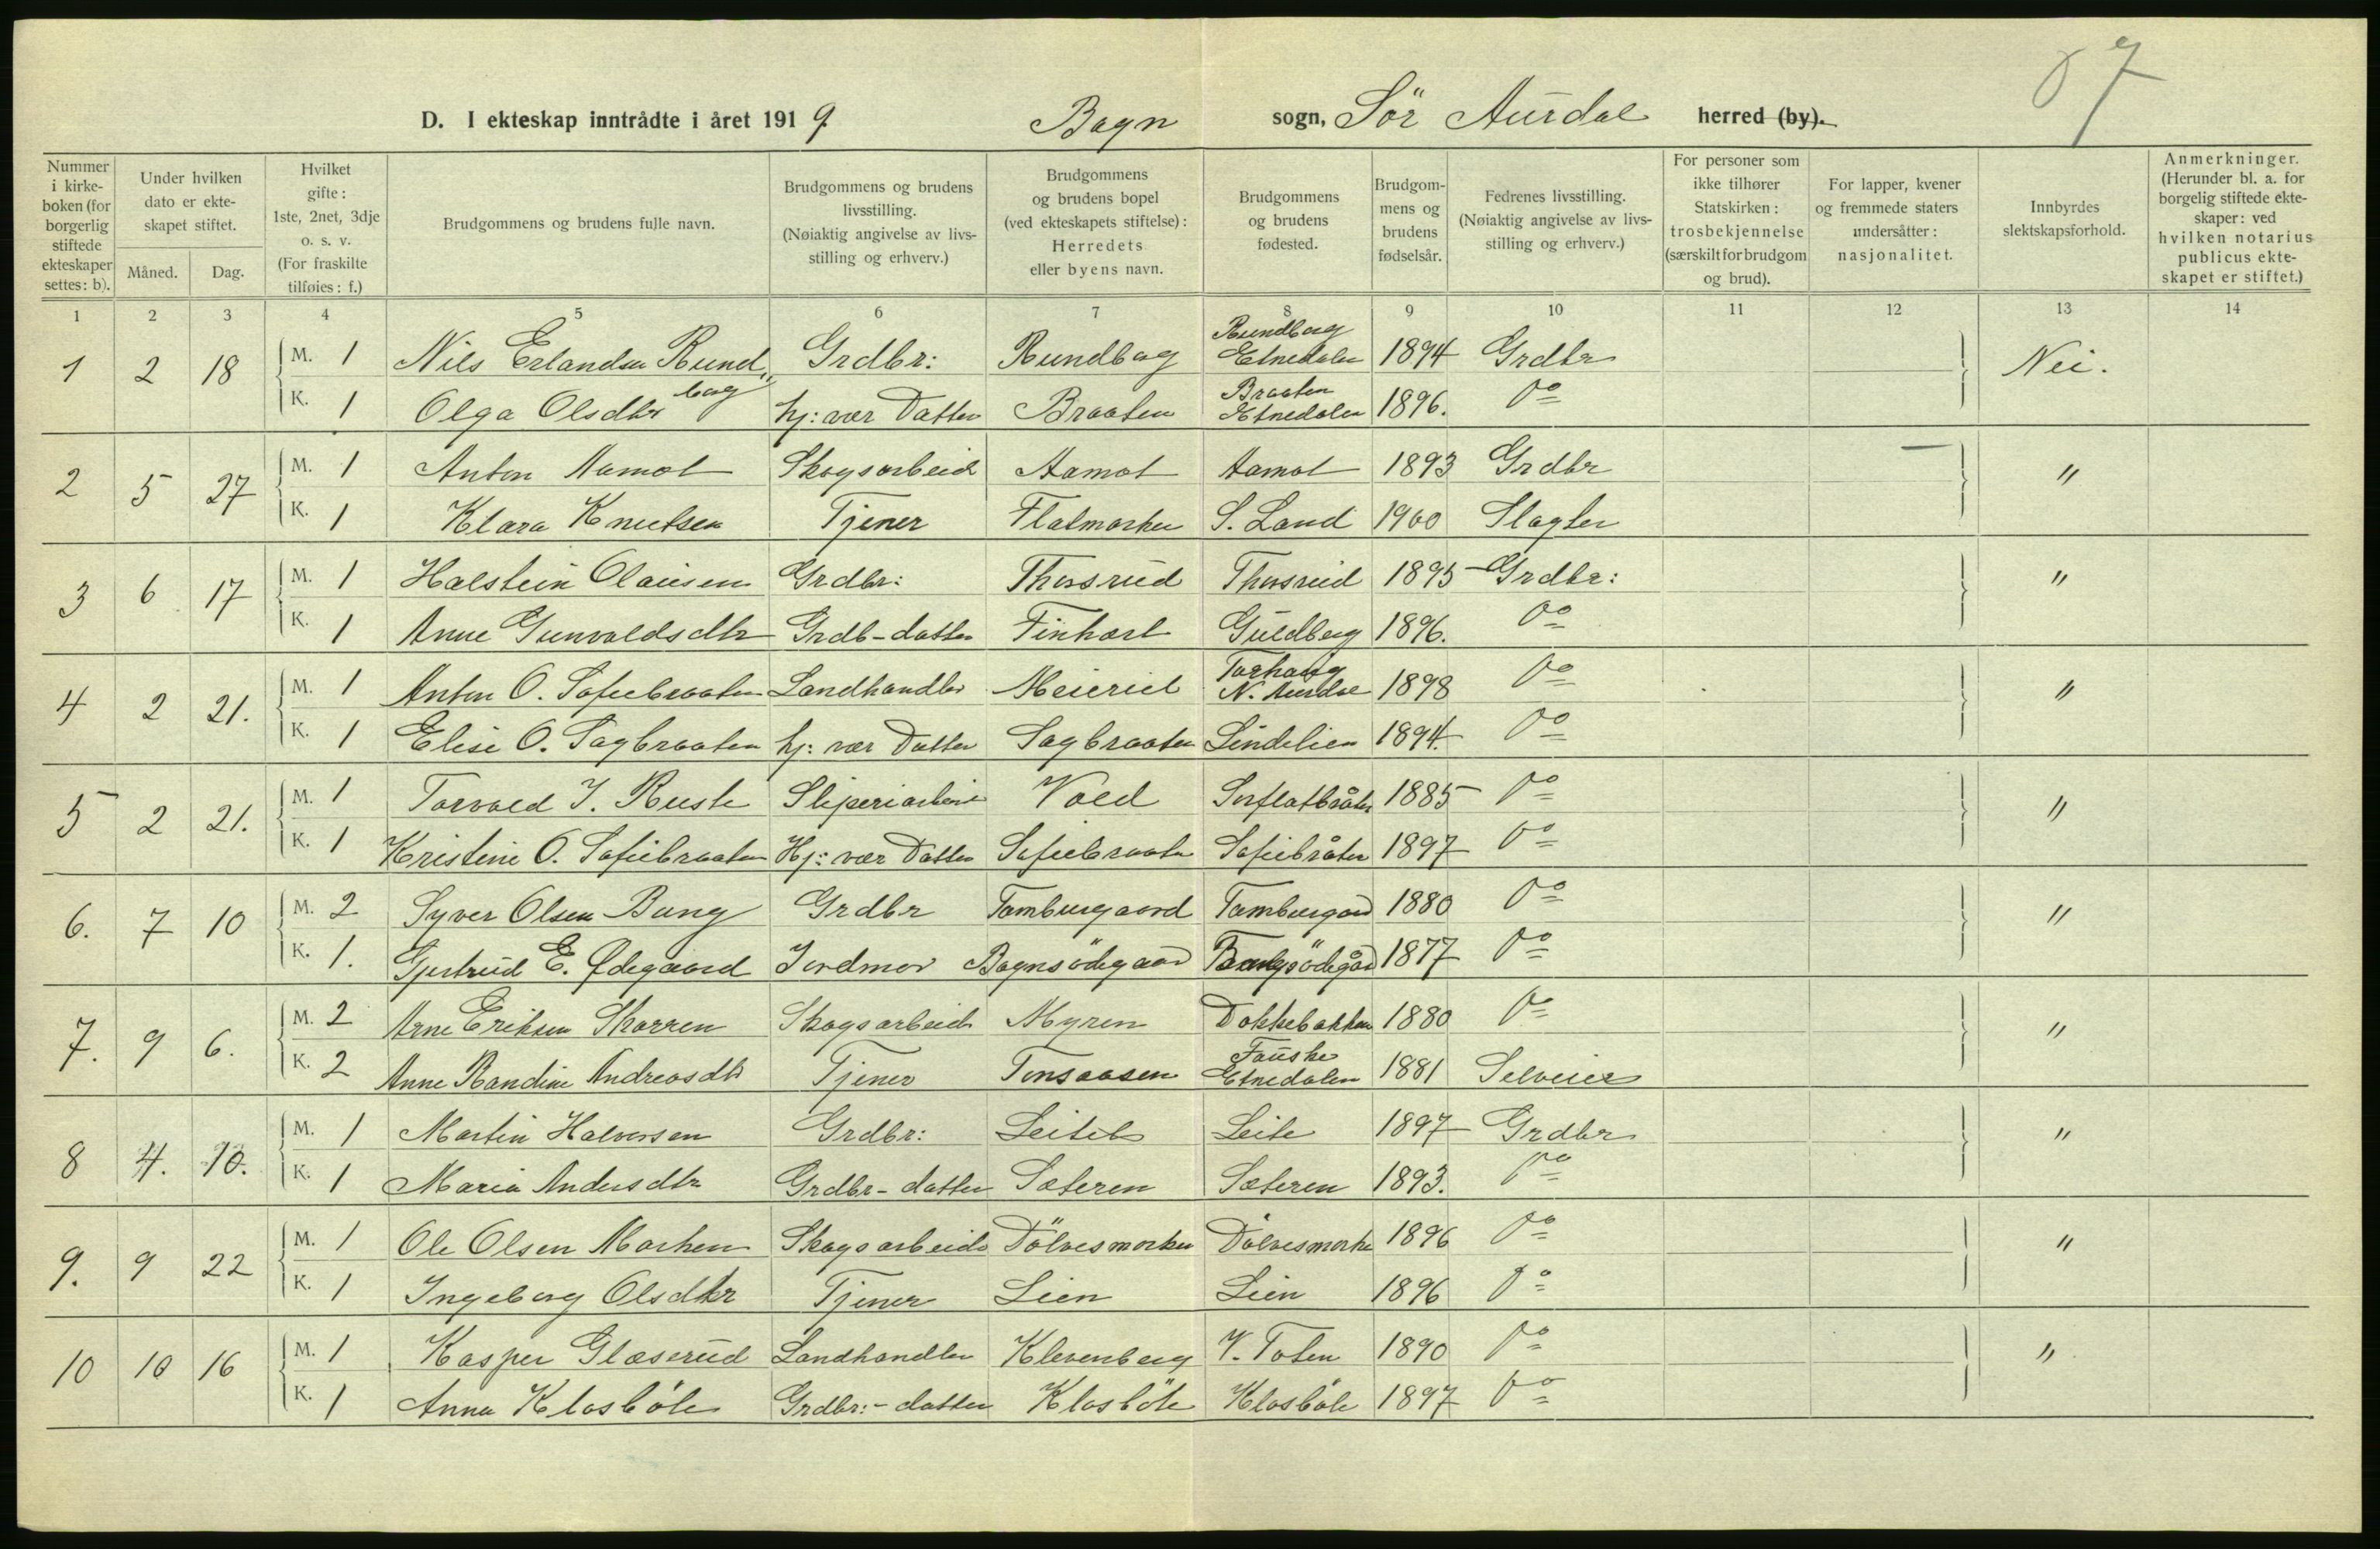 D. I ekteskap inntrådte i året 1919. Bagn sogn, Sör Aurdal herred (by).
Nummer i kirkeboken (for borgerlig stiftede ekteskaper settes: b). | Under hvilken dato er ekteskapet stiftet. Måned. Dag. | Hvilket gifte: 1ste, 2net, 3dje o. s. v. (For fraskilte tilføies: f.) | Brudgommens og brudens fulle navn. | Brudgommens og brudens livsstilling. (Nøiaktig angivelse av livsstilling og erhverv.) | Brudgommens og brudens bopel (ved ekteskapets stiftelse): Herredets eller byens navn. | Brudgommens og brudens fødested. | Brudgommens og brudens fødselsår. | Fedrenes livsstilling. (Nøiaktig angivelse av livsstilling og erhverv.) | For personer som ikke tilhører Statskirken: trosbekjennelse (særskilt for brudgom og brud). | For lapper, kvener og fremmede staters undersåtter: nasjonalitet. | Innbyrdes slektskapsforhold. | Anmerkninger. (Herunder bl. a. for borgelig stiftede ekteskaper: ved hvilken notarius publicus ekteskapet er stiftet.)
1 2 3 4 5 6 7 8 9 10 11 12 13 14
1 2 18 M. 1 Nils Erlandsen Rundbag Grdbr: Rundbag Rundbag Etnedalen 1894 Grdbr Nei.
K. 1 Olga Olsdtr hj: vær Datter Braaten Braaten Etnedalen 1896. Do
2 5 27 M. 1 Anton Aamot Skogsarbeid Aamot Aamot 1893 Grdbr "
K. 1 Klara Knutsen Tjener Flatmarken S. Land 1900 Slagter
3 6 17 M. 1 Halstein Olausen Grdbr: Thosrud Thosrud 1895 Grdbr: "
K. 1 Anne Gunvaldsdtr Grdb-datter Finhart Guldberg 1896. Do
4 2 21. M. 1 Anton O. Sofiebraaten Landhandler Meieriet Torhaug N. Aurdal 1898 Do "
K. 1 Elise O. Sagbraaten hj: vær Datter Sagbraaten Lindelien 1894. Do
5 2 21. M. 1 Torvald I. Ruste Sliperiarbeid Vold Sorflatbråten 1885 Do "
K. 1 Kristine O. Sofiebraaten Hj: vær Datter Sofiebraate Sofiebråten 1897 Do
6. 7 10 M. 2 Syver Olsen Bang Grdbr Tamburgaard Tamburgård 1880 Do "
K. 1. Gjertrud E. Ødegaard Jordmor Bagnsödegaard Bangsödegård 1877 Do
7. 9 6. M. 2 Arne Eriksen Skarren Skogsarbeid Myren Dokkebakken 1880 Do "
K. 2 Anne Randine Andreasdtr Tjener Tonsaasen Fauske Etnedalen 1881 Selveier
8 4. 10. M. 1 Martin Halvorsen Grdbr: Leite Leite 1897 Grdbr "
K. 1 Maria Andersdtr Grdbr-datter Sæteren Sæteren 1893. Do
9. 9 22 M. 1 Ole Olsen Marken Skogsarbeid Dölvesmorken Dölvesmorke 1896 Do "
K. 1 Ingeborg Olsdtr Tjener Lien Lien 1896 Do
10 10 16 M. 1 Kasper Glæserud Landhandler Klevenberg V. Toten 1890 Do "
K. 1 Anna Klosböle Grdbr:-datter Klosböle Klosböle 1897 Do